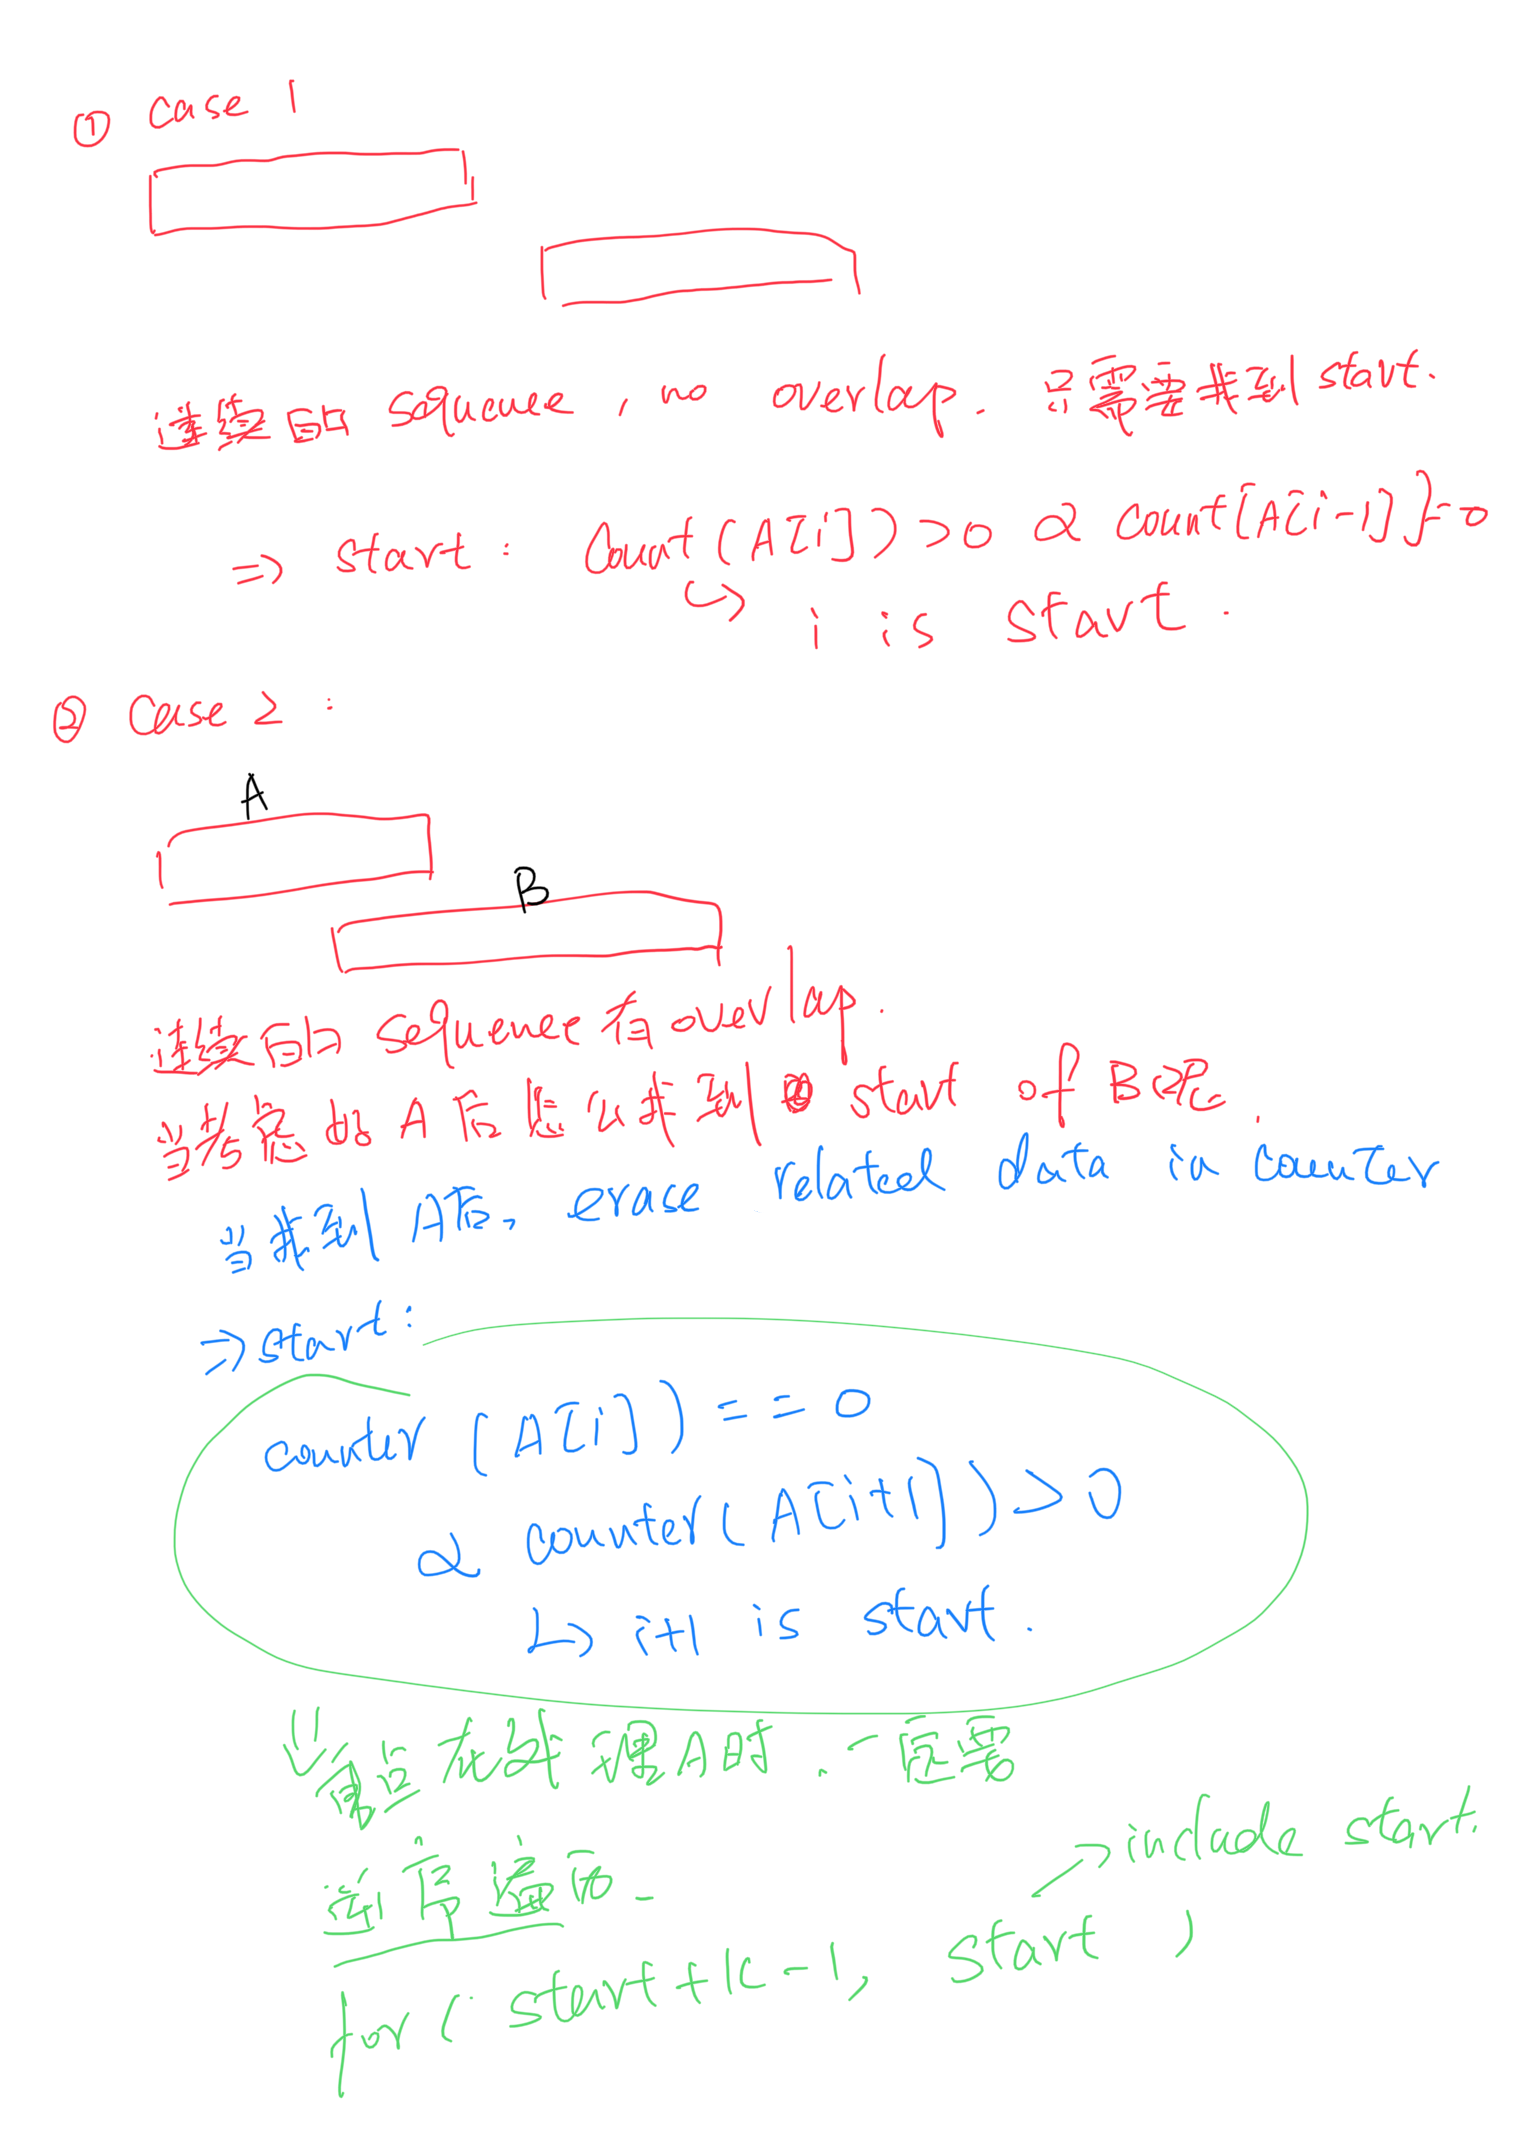 ① case 1
连续的 sequence, no overlap. 只需要找到 start.
=> start: Count(A[i])>0 & count[A[i-1]]=0
↳ i is start.
② Case 2:
A
B
连续的 sequence 有 overlap.
当考虑好 A 后怎么找到 start of B呢.
当找到 A后, erase related data in counter
=> start:
counter (A[i]) == 0
& counter(A[i+1]) > 0
↳ i+1 is start.
重点在处理A时, 一定需
逆序遍历.
include start.
for( start+k-1, start )